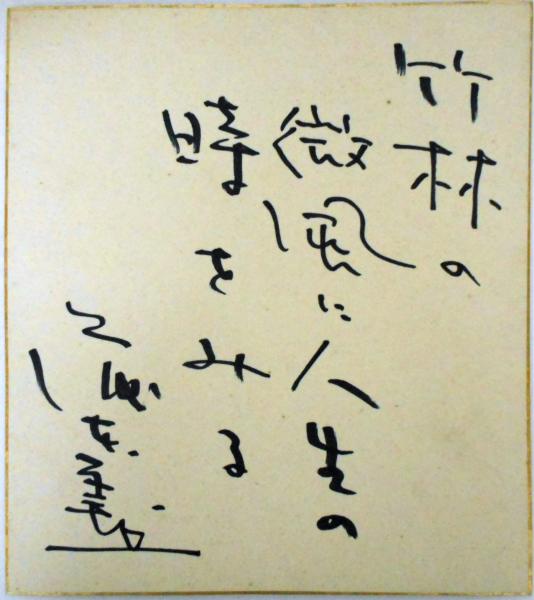 竹林の
微風に人生の
時をみる